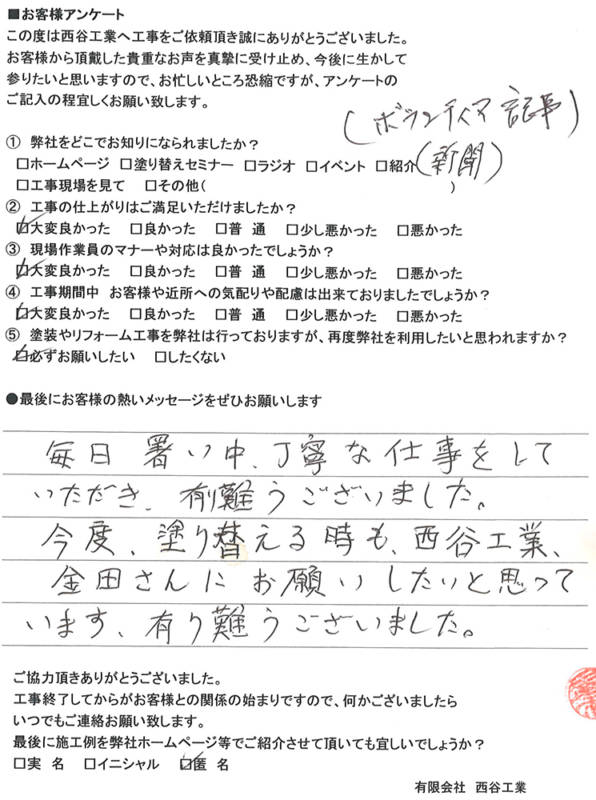 ■お客様アンケート
この度は西谷工業へ工事をご依頼頂き誠にありがとうございました。
お客様から頂戴した貴重なお声を真摯に受け止め、今後に生かして
参りたいと思いますので、お忙しいところ恐縮ですが、アンケートの
ご記入の程宜しくお願い致します。
(ボランティア 記事)
① 弊社をどこでお知りになられましたか?
□ホームページ □塗り替えセミナー □ラジオ □イベント □紹介(新聞)
□工事現場を見て □その他( )
② 工事の仕上がりはご満足いただけましたか?
☑大変良かった □良かった □普 通 □少し悪かった □悪かった
③ 現場作業員のマナーや対応は良かったでしょうか?
☑大変良かった □良かった □普 通 □少し悪かった □悪かった
④ 工事期間中 お客様や近所への気配りや配慮は出来ておりましたでしょうか?
☑大変良かった □良かった □普 通 □少し悪かった □悪かった
⑤ 塗装やリフォーム工事を弊社は行っておりますが、再度弊社を利用したいと思われますか?
☑必ずお願いしたい □したくない
●最後にお客様の熱いメッセージをぜひお願いします
毎日 暑い中、丁寧な仕事をして
いただき、有難うございました。
今度、塗り替える時も、西谷工業、
金田さんに お願いしたいと思って
います、有り難うございました。
ご協力頂きありがとうございました。
工事終了してからがお客様との関係の始まりですので、何かございましたら
いつでもご連絡お願い致します。
最後に施工例を弊社ホームページ等でご紹介させて頂いても宜しいでしょうか?
□実 名 □イニシャル ☑匿 名
有限会社 西谷工業